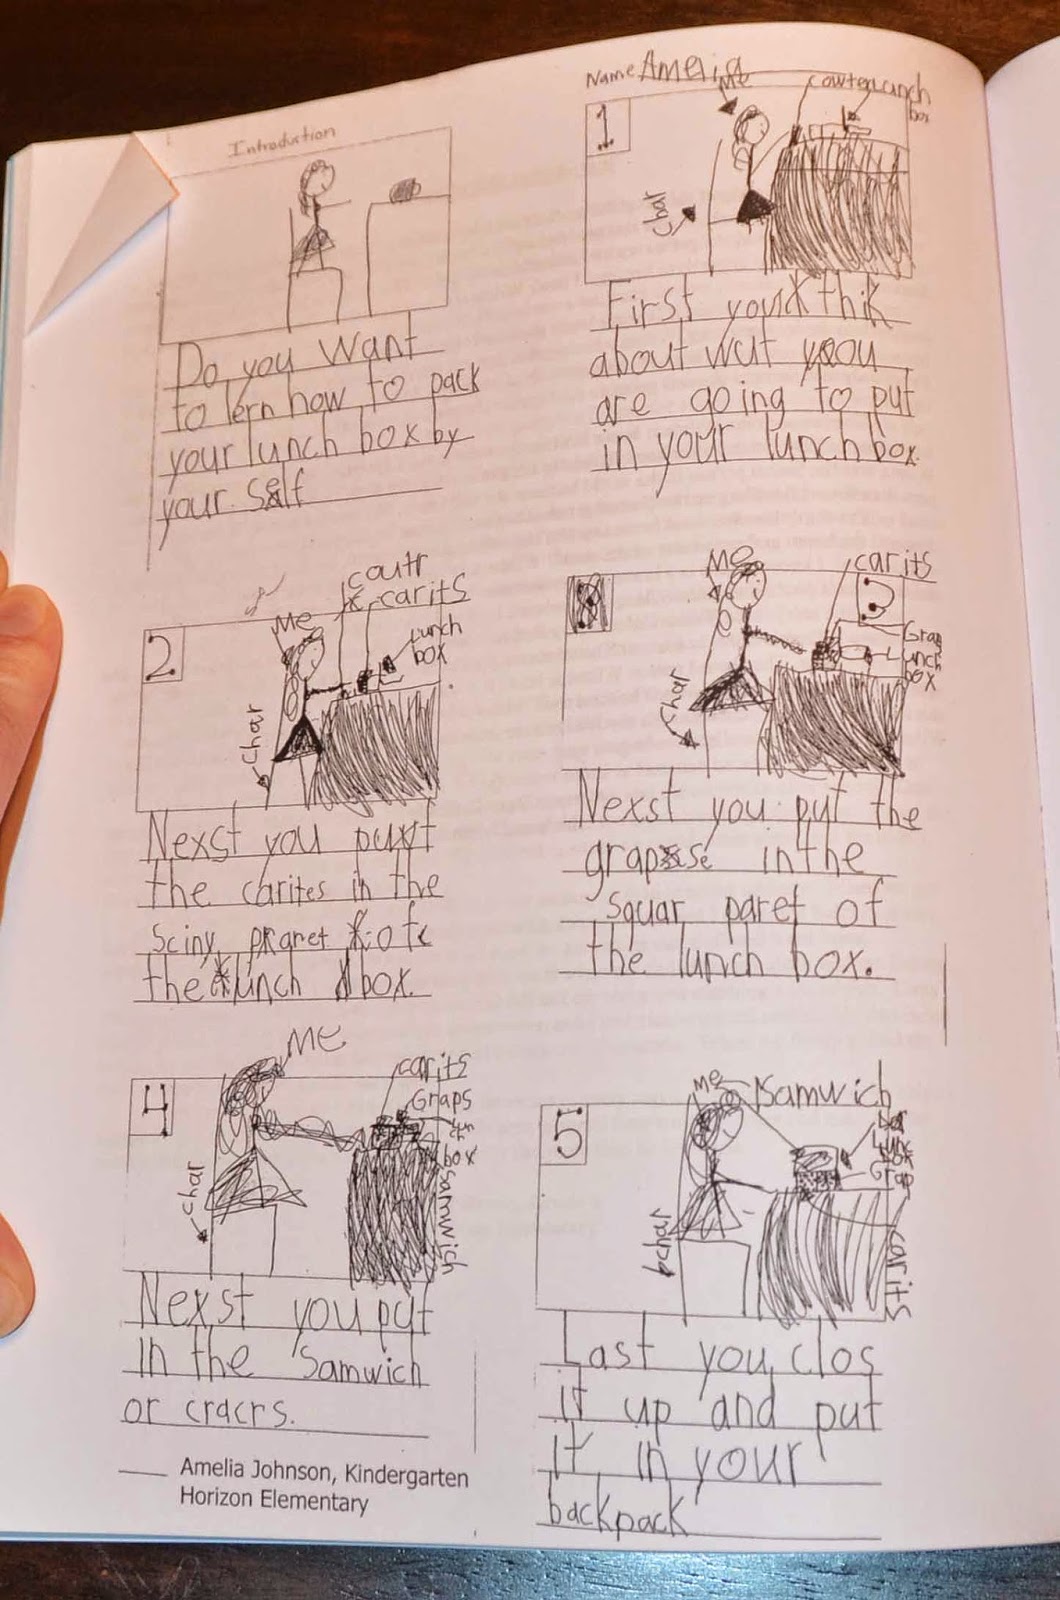 Introduction
Do you want
to lern how to pack
your lunch box by
your self
Name Amelia
1
Me
cowter
lunch
box
char
First you thik
about wut you
are going to put
in your lunch box.
2
Me
coutr
carits
lunch
box
char
Nexst you put
the carites in the
sciny paret of
the lunch box.
Me
carits
3
Grap
lunch
box
char
Nexst you put the
grapse in the
squar paret of
the lunch box.
4
Me
carits
Graps
box
samwich
char
Nexst you put
in the samwich
or cracrs.
5
Me
samwich
Lunch
box
Grap
carits
char
Last you clos
it up and put
it in your
backpack
Amelia Johnson, Kindergarten
Horizon Elementary